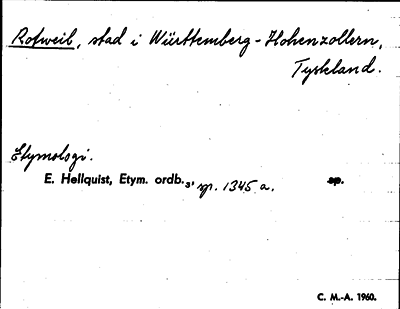 Rotweil, stad i Württemberg-Hohenzollern,
Tyskland.
Etymologi.
E. Hellquist, Etym. ordb.3, sp. 1345 a. sp.
C. M.-A. 1960.